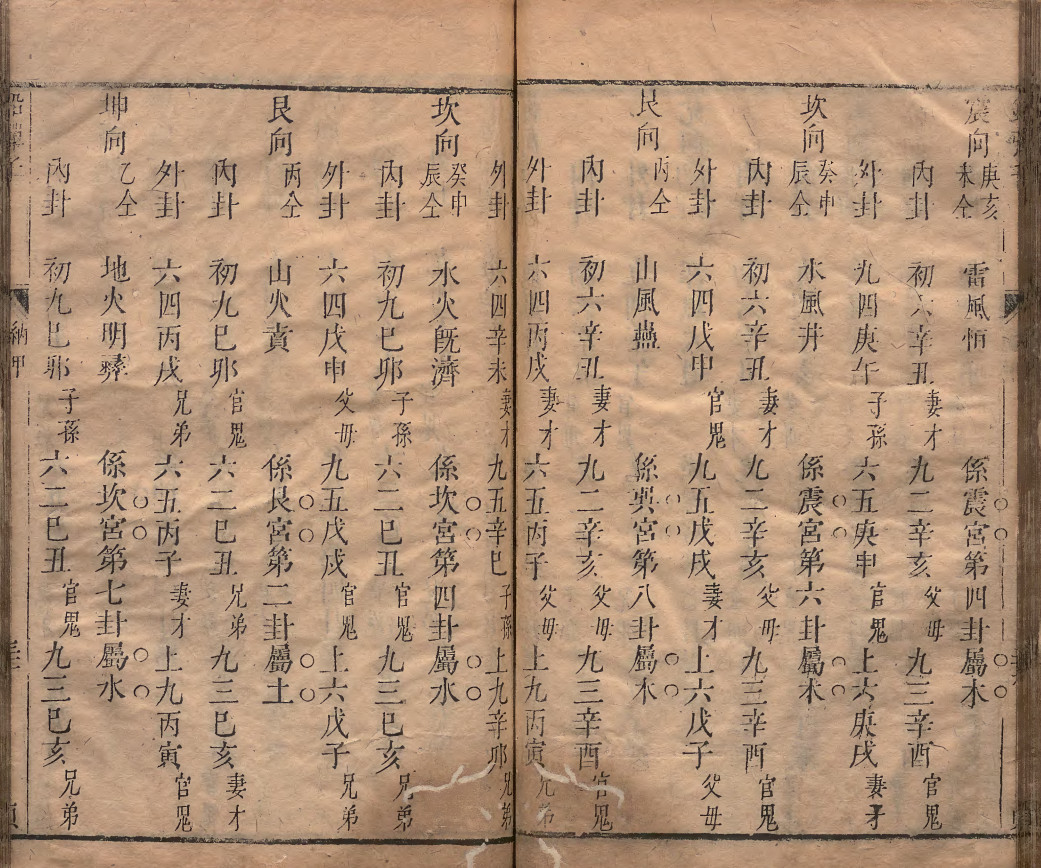 震向 庚亥未仝 雷風恒 係震宮第四卦屬木
內卦 初六辛丑 妻才 九二辛亥 父母 九三辛酉 官鬼
外卦 九四庚午 子孫 六五庚申 官鬼 上六庚戌 妻才
坎向 癸申辰仝 水風井 係震宮第六卦屬木
內卦 初六辛丑 妻才 九二辛亥 父母 九三辛酉 官鬼
外卦 六四戊申 官鬼 九五戊戌 妻才 上六戊子 父母
艮向 丙仝 山風蠱 係巽宮第八卦屬木
內卦 初六辛丑 妻才 九二辛亥 父母 九三辛酉 官鬼
外卦 六四丙戌 妻才 六五丙子 父母 上九丙寅 兄弟
外卦 六四辛未 妻才 九五辛巳 子孫 上九辛卯 兄弟
坎向 癸申辰仝 水火既濟 係坎宮第四卦屬水
內卦 初九巳卯 子孫 六二巳丑 官鬼 九三巳亥 兄弟
外卦 六四戊申 父母 九五戊戌 官鬼 上六戊子 兄弟
艮向 丙仝 山火賁 係艮宮第二卦屬土
內卦 初九巳卯 官鬼 六二巳丑 兄弟 九三巳亥 妻才
外卦 六四丙戌 兄弟 六五丙子 妻才 上九丙寅 官鬼
坤向 乙仝 地火明彝 係坎宮第七卦屬水
內卦 初九巳卯 子孫 六二巳丑 官鬼 九三巳亥 兄弟
納甲